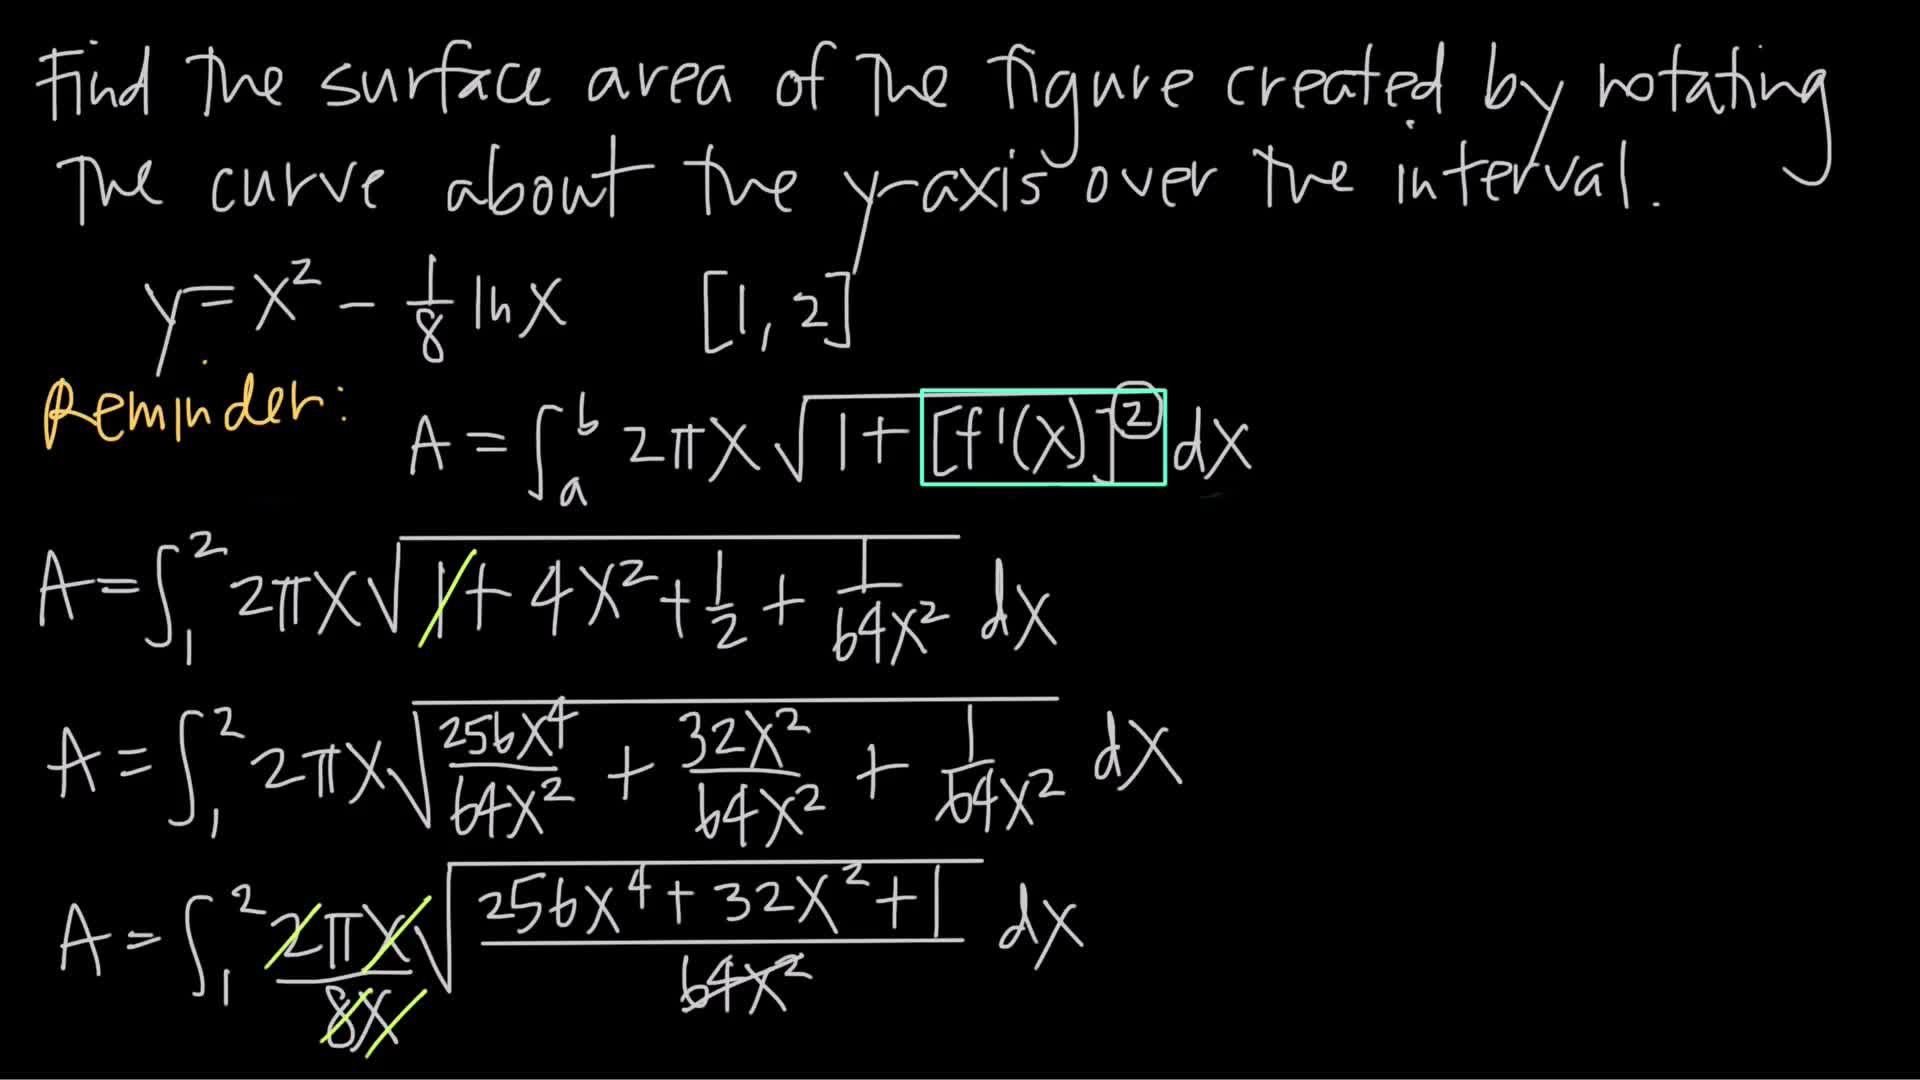 Find the surface area of the figure created by rotating
the curve about the y-axis over the interval.
y = x² - 1/8 ln x [1, 2]
Reminder:
A = ∫_a^b 2πx √(1 + [f'(x)]²) dx
A = ∫_1^2 2πx √(1 + 4x² + 1/2 + 1/(64x²)) dx
A = ∫_1^2 2πx √(256x⁴/(64x²) + 32x²/(64x²) + 1/(64x²)) dx
A = ∫_1^2 2πx/(8x) √((256x⁴ + 32x² + 1)/(64x²)) dx